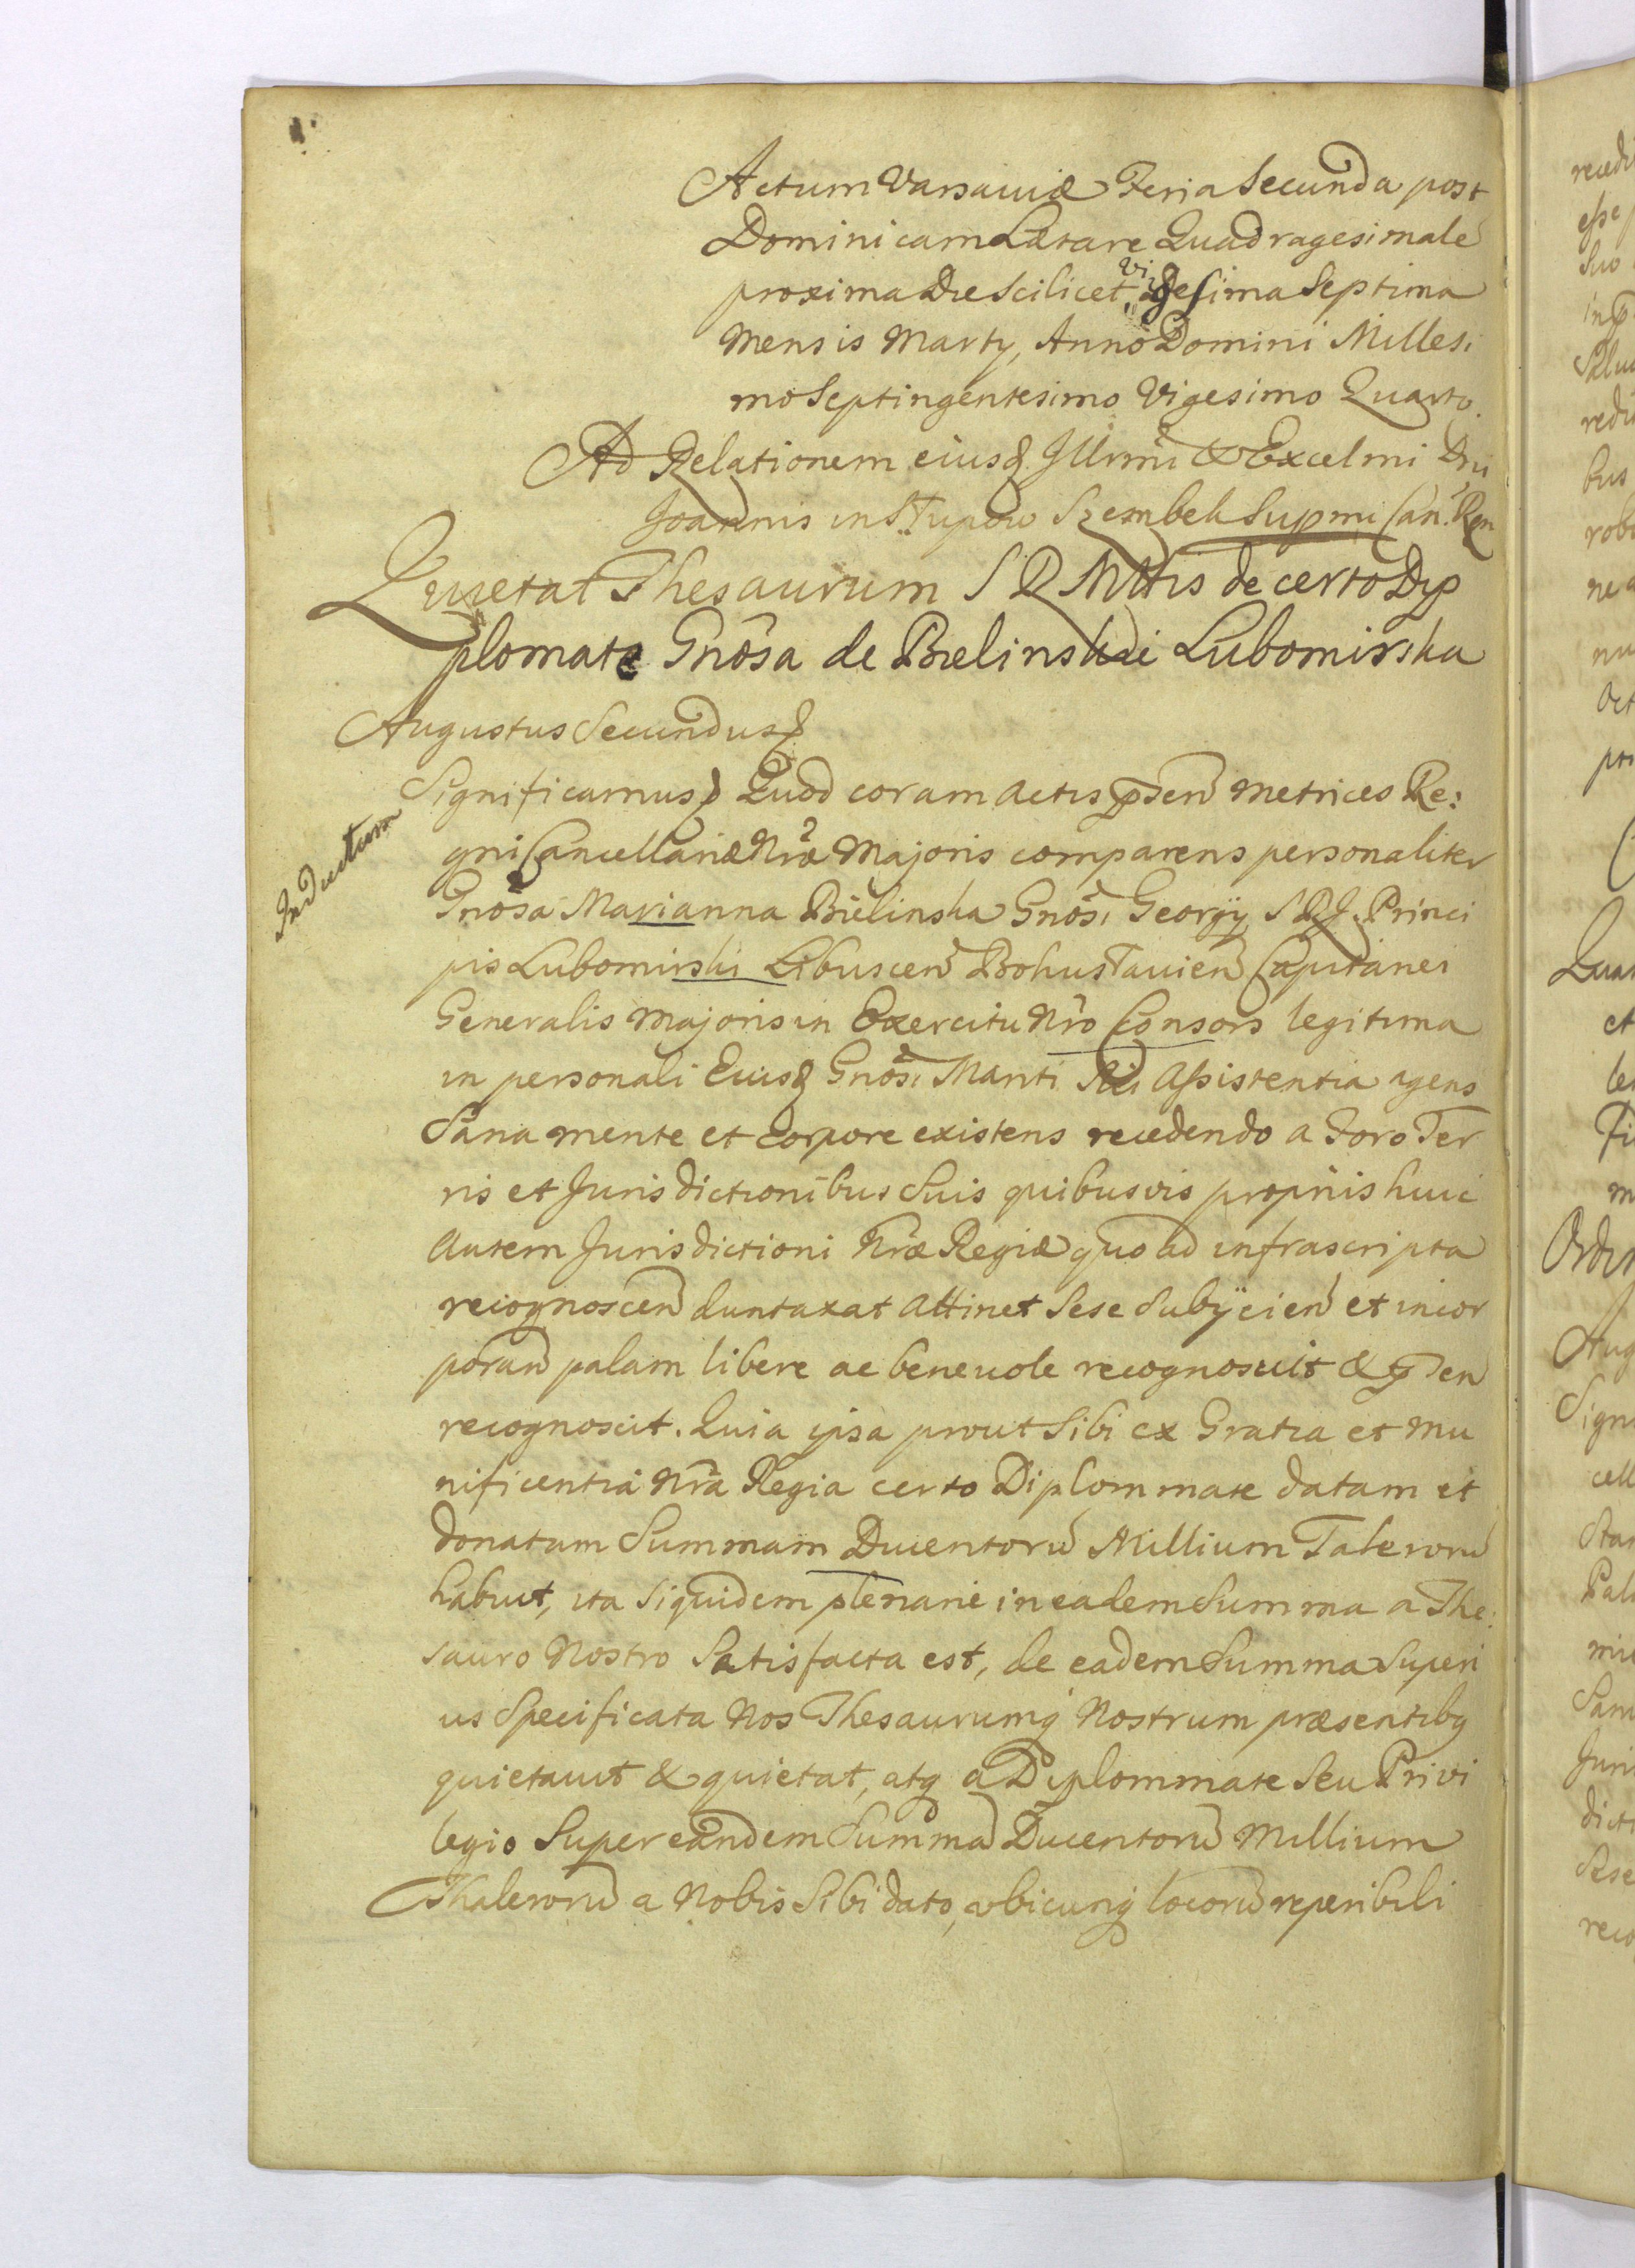 Actum Varsaviæ Feria Secunda post
Dominicam Lætare Quadragesimalē
proxima Die Scilicet Vigesima Septima
Mensis Martÿ, Anno Domini Millesi
mo Septingentesimo Vigesimo Quarto.
Ad Relationem eiusd. Illrmi & Excelmi Dni
Joannis in Słupow Szembek Supmi Can. Regn
Quietat Thesaurum S R Mttis de certo Dyp
plomate Gnosa de Bielinskie Lubomirska
Augustus Secundus &
Significamus & Quod coram actis pñsen Metrices Re:
gni Cancellariæ Nræ Majoris comparens personaliter
Inductum
Gnosa Marianna Bielinska Gnosi Georgÿ S R J. Princi
pis Lubomirski Libuscen Bohuslauien Capitanei
Generalis Majoris in Exercitu Nro Consors legitima
in personali Eiusd Gnosi Mariti Sui Assistentia agens
Sana mente et corpore existens recedendo a Foro Ter
ris et Jurisdictionibus Suis quibusvis proprijs huic
autem Jurisdictioni Nræ Regiæ quo ad infrascripta
recognoscen duntaxat attinet Sese Subÿcien et incor
poran palam libere ac benevole recognovit & pñsen
recognoscit. Quia ipsa prout Sibi ex Gratia et mu
nificentia Nra Regia certo Diplommate datam et
donatam Summam Ducentorū Millium Talerorū
habuit, ita Siquidem plenarie in eadem Summa a The:
sauro Nostro Satisfacta est, de eadem Summa Superi
us Specificata Nos Thesaurumq Nostrum præsentibq
quietauit & quietat, atq a Diplommate Seu Privi
legio Super eandem Summā Ducentorū Millium
Thalerorū a Nobis Sibi dato, ubicunq locorū reperibili